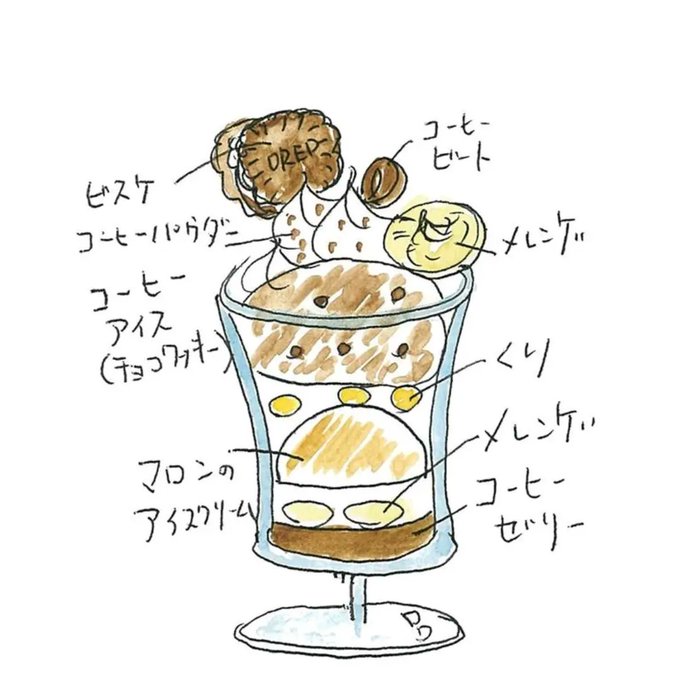 コーヒー
ビート
OREO
ビスケ
コーヒーパウダー
メレンゲ
コーヒー
アイス
(チョコクッキー)
くり
メレンゲ
マロンの
アイスクリーム
コーヒー
ゼリー